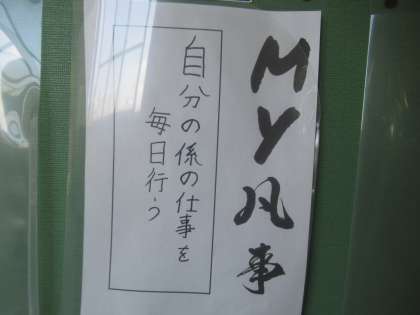 MY凡事
自分の係の仕事を
毎日行う